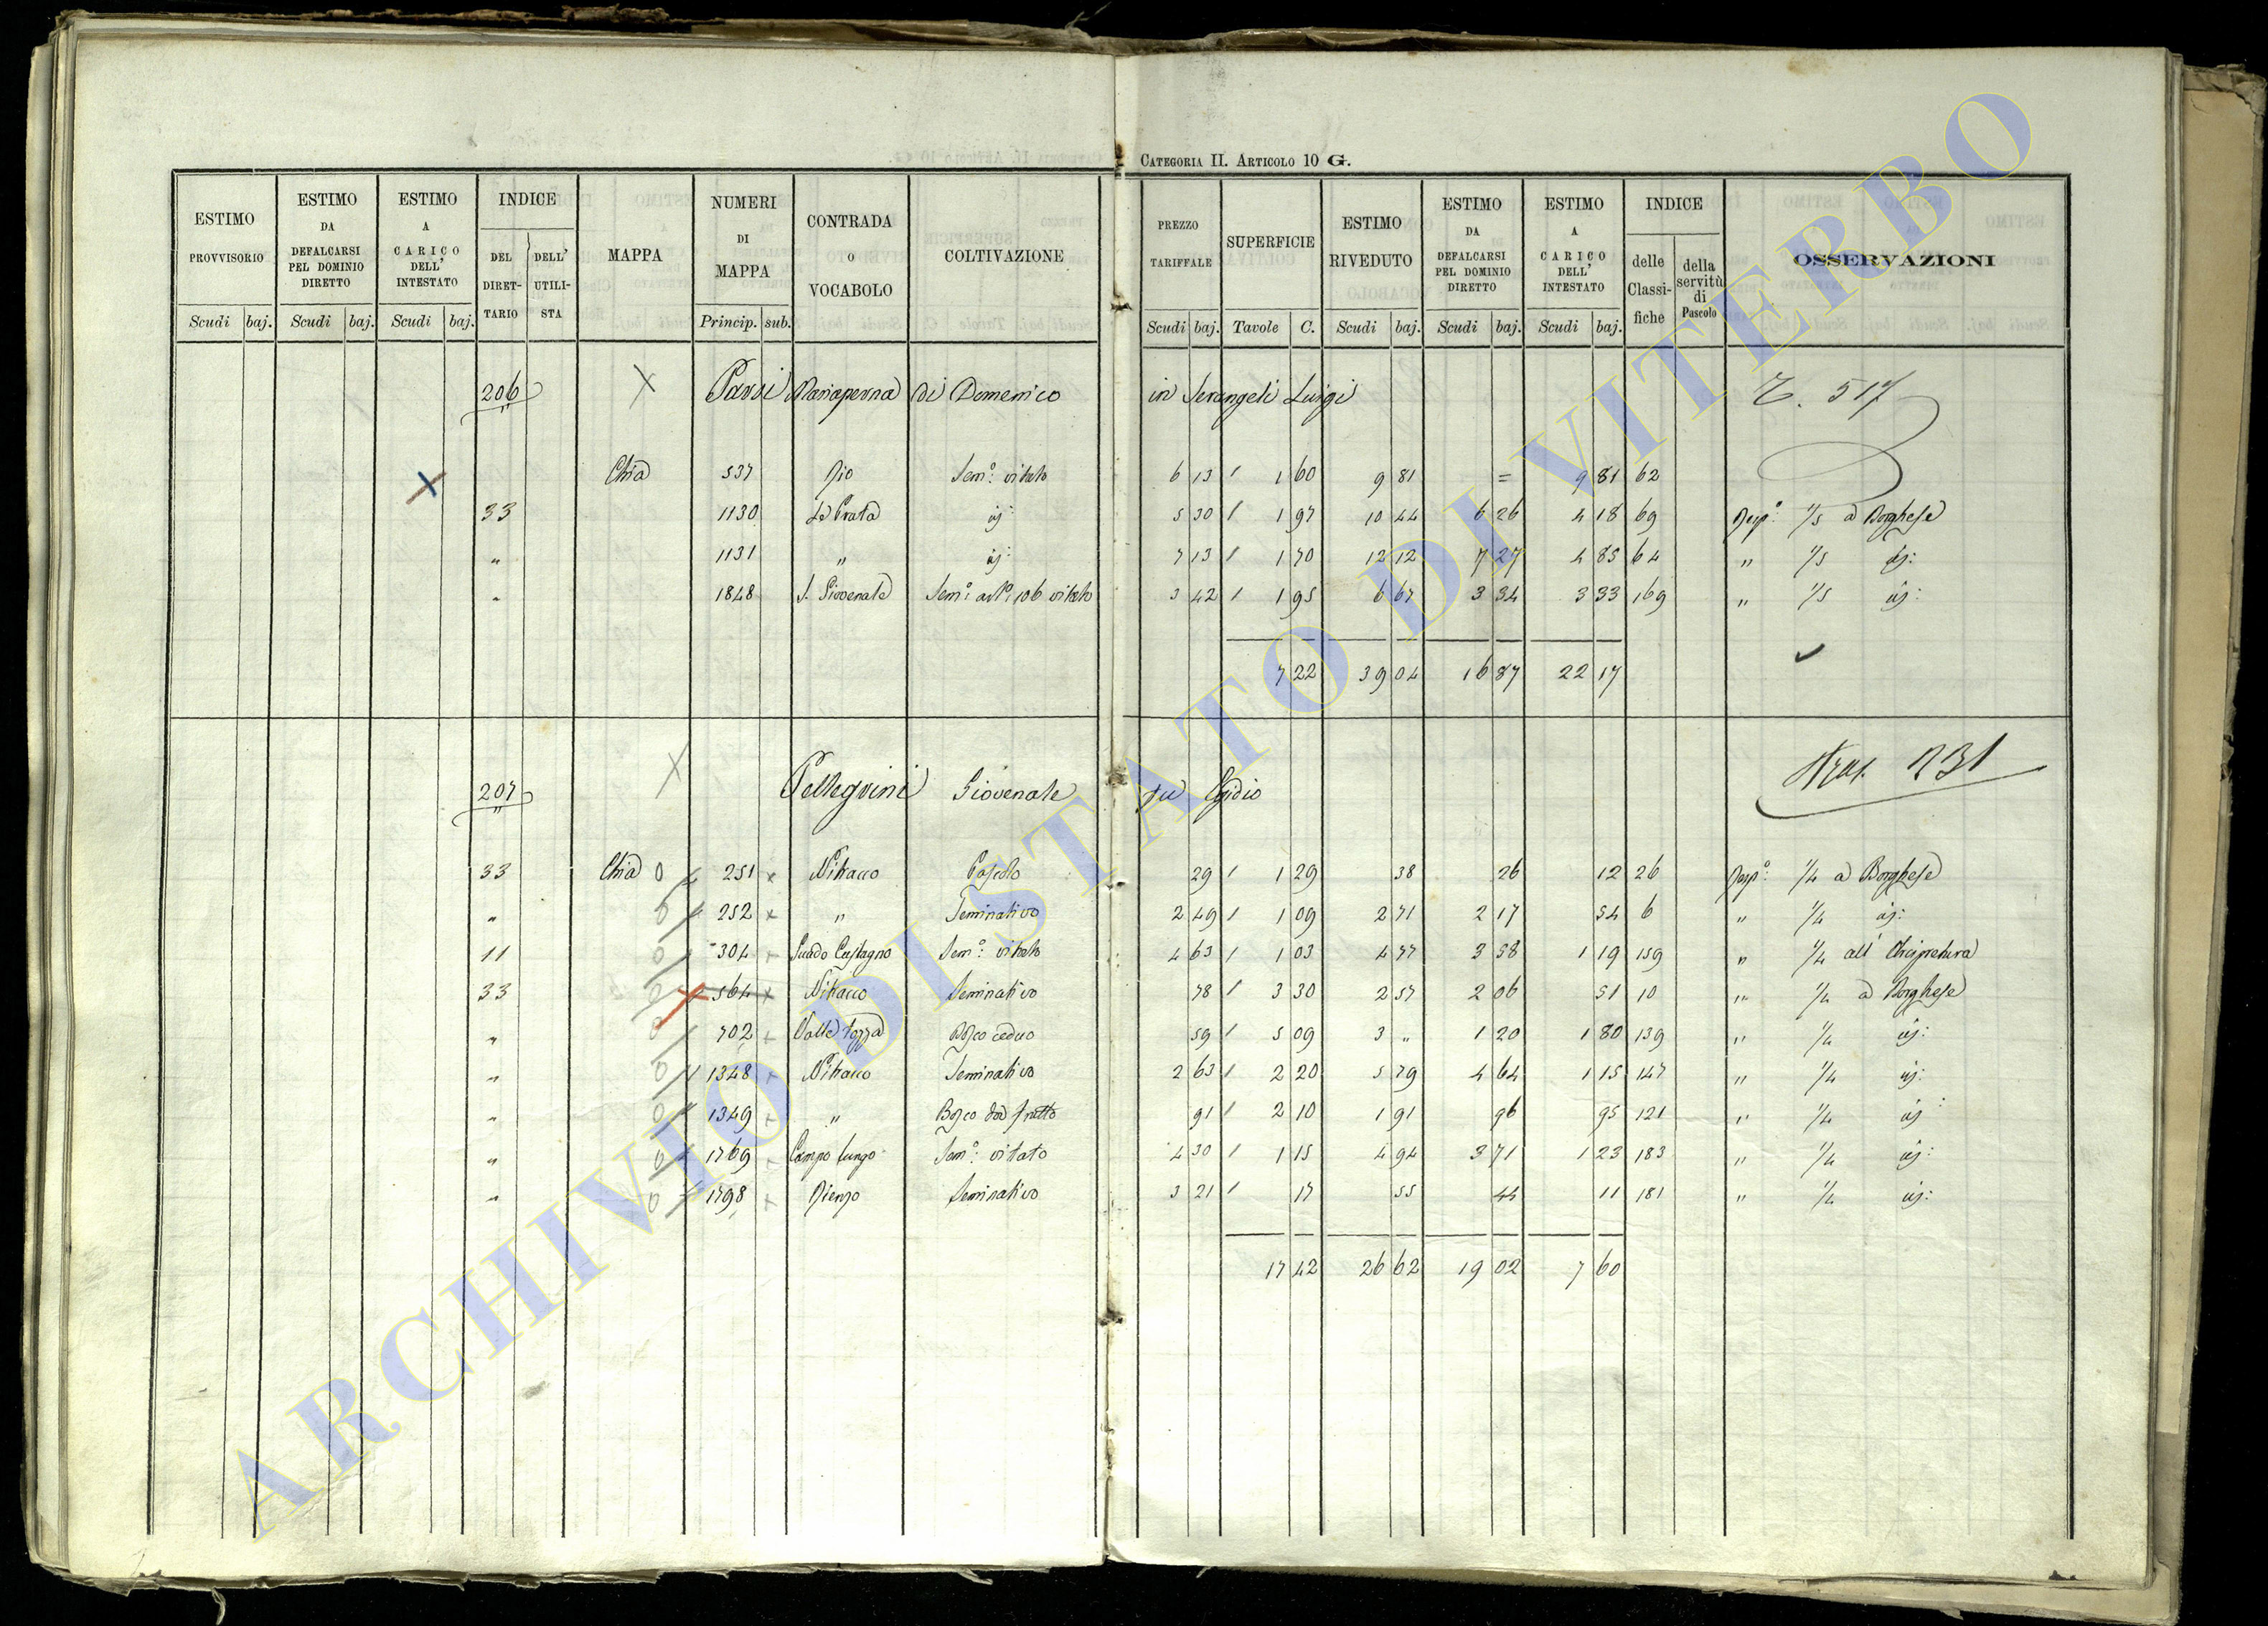 CATEGORIA II. ARTICOLO 10 G.
ESTIMO PROVVISORIO Scudi baj.
ESTIMO DA DEFALCARSI PEL DOMINIO DIRETTO Scudi baj.
ESTIMO A CARICO DELL' INTESTATO Scudi baj.
INDICE DEL DIRETTARIO DELL' UTILISTA
MAPPA
NUMERI DI MAPPA Princip. sub.
CONTRADA O VOCABOLO
COLTIVAZIONE
PREZZO TARIFFALE Scudi baj.
SUPERFICIE Tavole C.
ESTIMO RIVEDUTO Scudi baj.
ESTIMO DA DEFALCARSI PEL DOMINIO DIRETTO Scudi baj.
ESTIMO A CARICO DELL' INTESTATO Scudi baj.
INDICE delle Classifiche della servitù di Pascolo
OSSERVAZIONI
206 di Domenico in Serangeli Luigi 517
Chia 537 Rio Sem.º vitato 6 13 1 1 60 9 81 = 9 81 62
33 1130 Le Prata id: 5 30 1 1 97 10 44 6 26 4 18 69 Risp.º 1/5 a Borghese
" 1131 " id: 7 13 1 1 70 12 12 7 27 4 85 64 " 1/5 id:
" 1848 S. Giovenale Sem.º vitato 3 42 1 1 95 6 67 3 34 3 33 169 " 1/5 id:
7 22 39 04 16 87 22 17
207 Pellegrini Giovenale fu Egidio 231
33 Chia 0 251 x Nitracco Pascolo 29 1 1 29 38 26 12 26 Risp.º 1/4 a Borghese
" 0 252 x " Seminativo 2 49 1 1 09 2 71 2 17 54 6 " 1/4 id:
11 0 304 Guado Castagno Sem.º vitato 4 63 1 1 03 4 77 3 58 1 19 159 " 1/4 all' Arcipretura
33 0 564 x Nitracco Seminativo 78 1 3 30 2 57 2 06 51 10 " 1/4 a Borghese
" 0 702 Valle Bosco ceduo 59 1 5 09 3 " 1 20 1 80 139 " 1/4 id:
" 0 1348 Nitracco Seminativo 2 63 1 2 20 5 79 4 64 1 15 147 " 1/4 id:
" 0 1349 " Bosco da frutto 91 1 2 10 1 91 96 95 121 " 1/4 id:
" 0 1769 Campo lungo Sem.º vitato 4 30 1 1 15 4 94 3 71 1 23 183 " 1/4 id:
" 0 1798 Seminativo 3 21 1 17 55 44 11 181 " 1/4 id:
17 42 26 62 19 02 7 60
ARCHIVIO DI STATO DI VITERBO